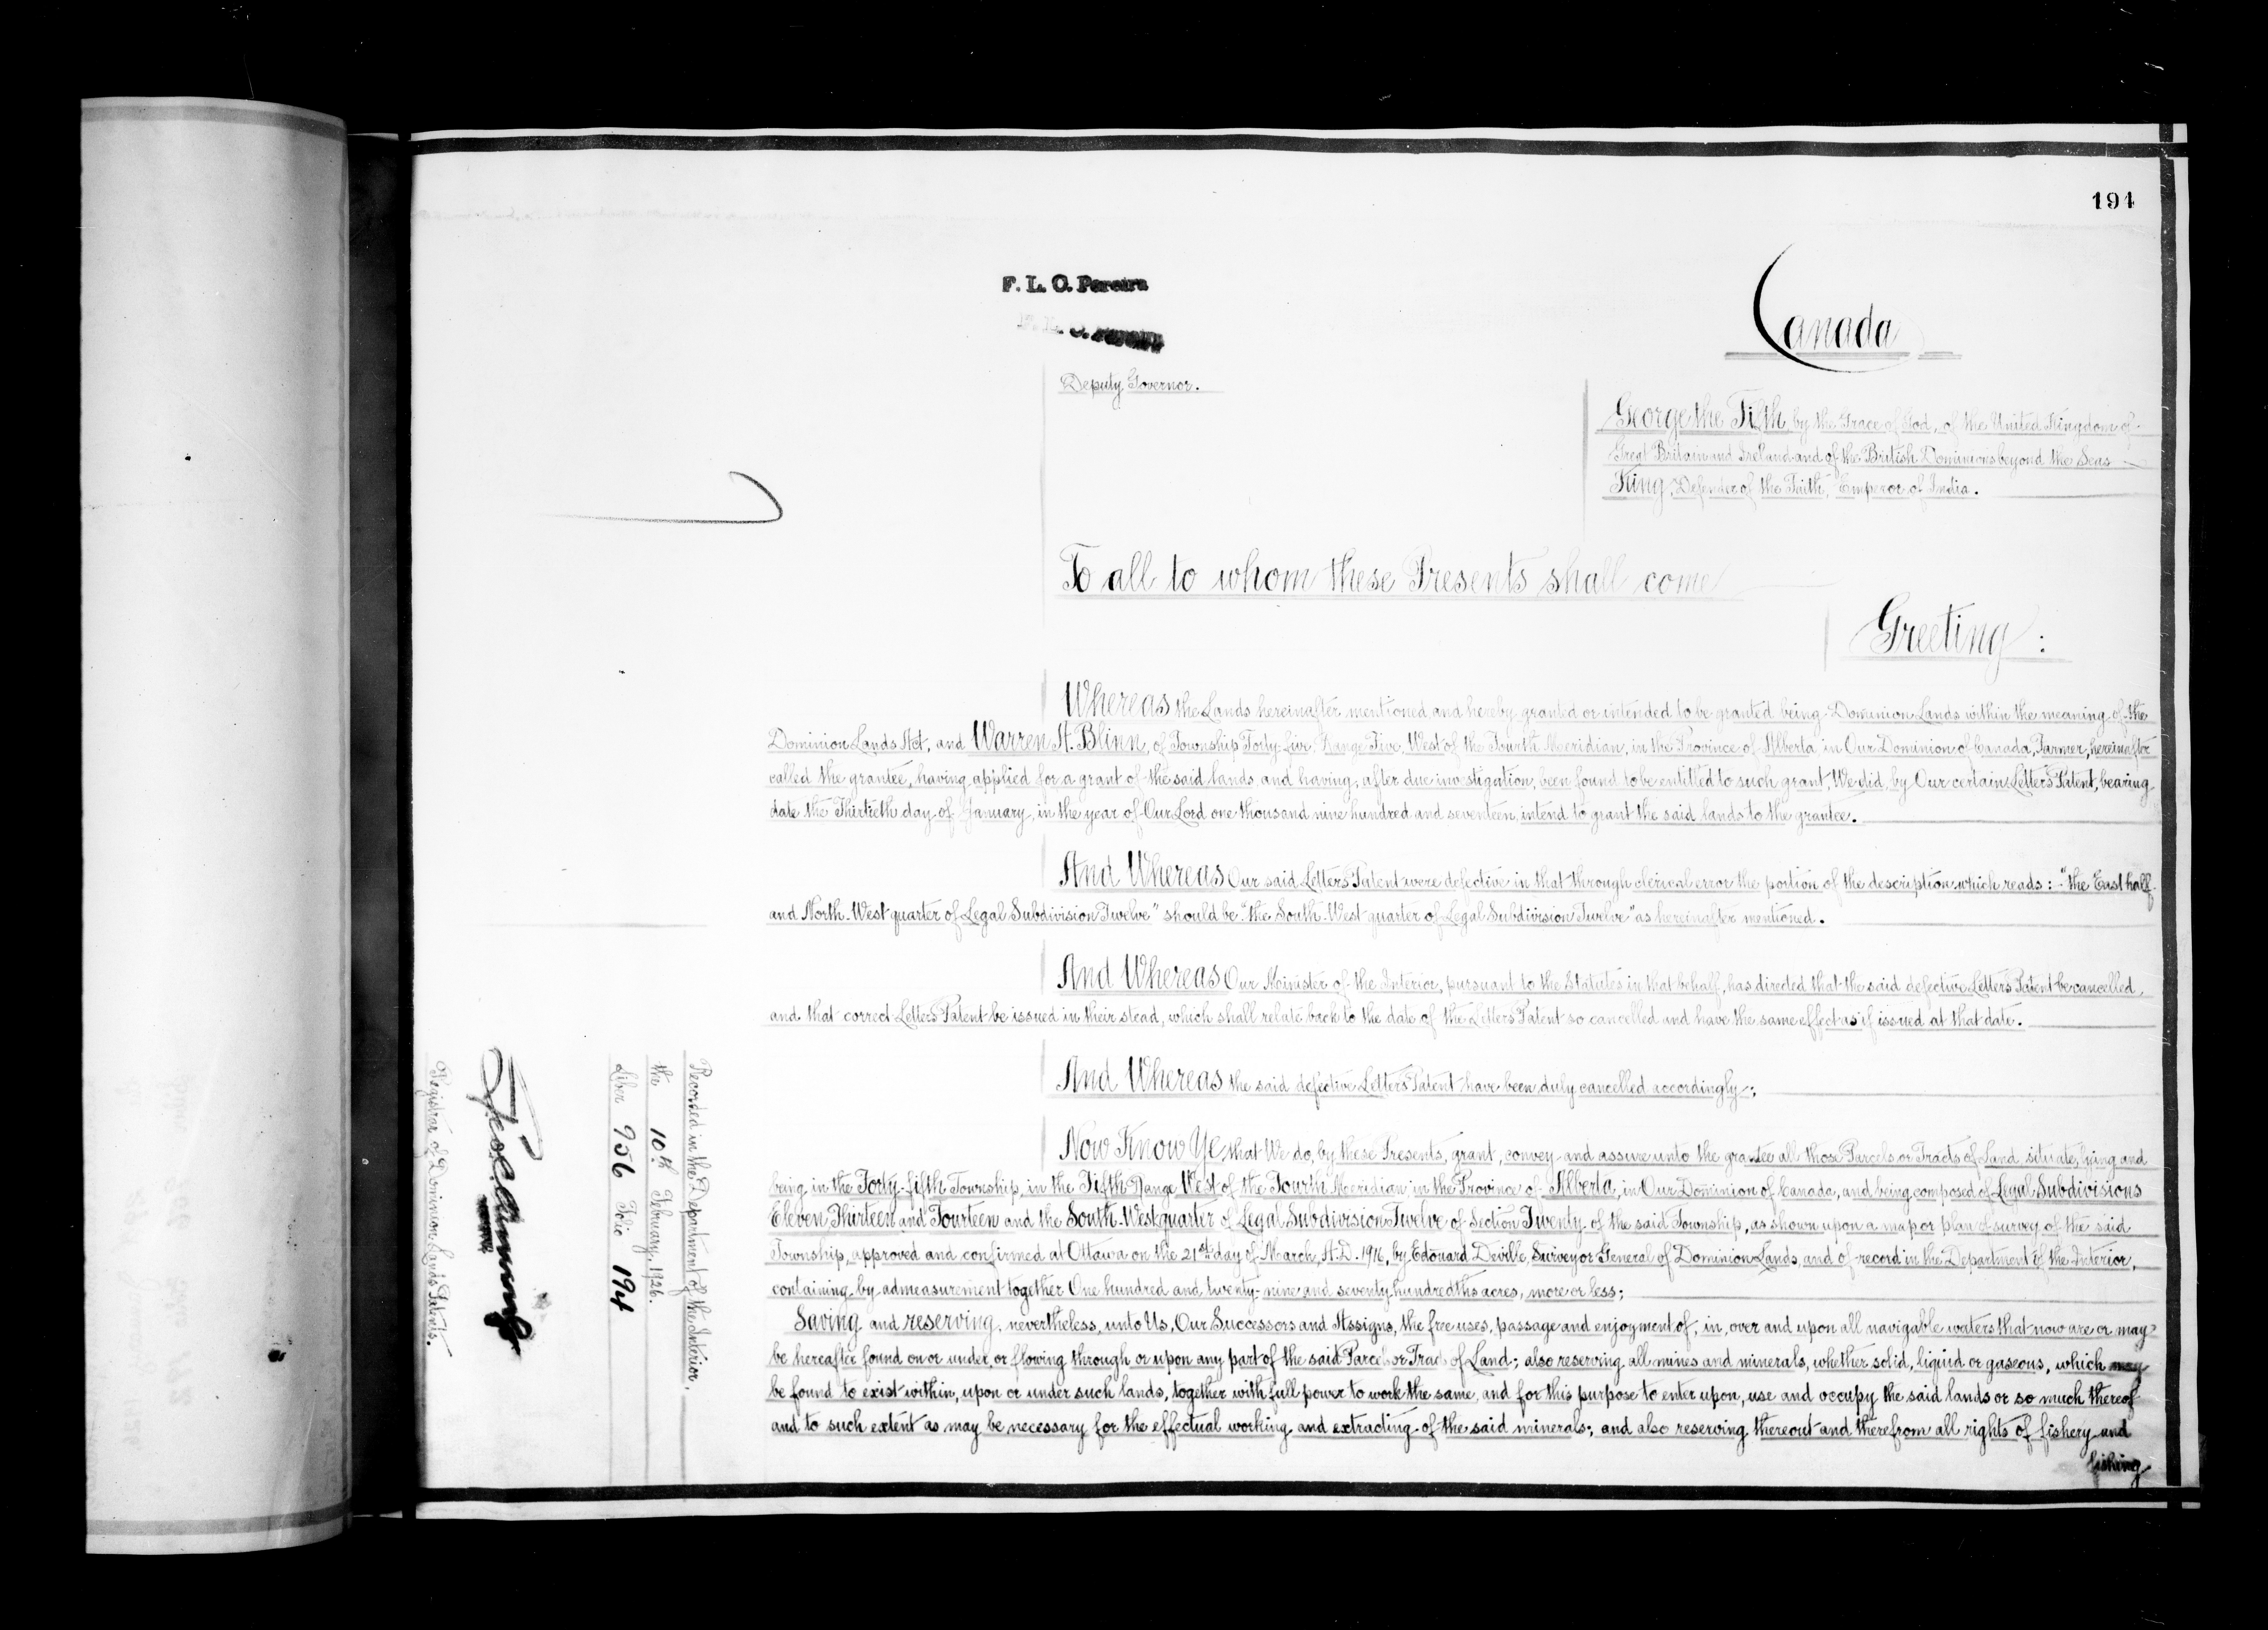 194
F. L. O. Pereira
Canada
Deputy Governor.
George the Fifth, by the Grace of God, of the United Kingdom of
Great Britain and Ireland and of the British Dominions beyond the Seas
King, Defender of the Faith, Emperor of India.
To all to whom these Presents shall come
Greeting:
Whereas the Lands hereinafter mentioned and hereby granted or intended to be granted being Dominion Lands within the meaning of the
Dominion Lands Act, and Warren A. Blinn, of Township Forty-five, Range Five, West of the Fourth Meridian, in the Province of Alberta in Our Dominion of Canada, Farmer, hereinafter
called the grantee, having applied for a grant of the said lands, and having, after due investigation, been found to be entitled to such grant, We did, by Our certain Letters Patent, bearing
date the Thirtieth day of January, in the year of Our Lord one thousand nine hundred and seventeen, intend to grant the said lands to the grantee.
And Whereas Our said Letters Patent were defective in that through clerical error the portion of the description which reads: "the East half
and North-West quarter of Legal Subdivision Twelve" should be "the South-West quarter of Legal Subdivision Twelve" as hereinafter mentioned.
And Whereas Our Minister of the Interior, pursuant to the Statutes in that behalf, has directed that the said defective Letters Patent be cancelled,
and that correct Letters Patent be issued in their stead, which shall relate back to the date of the Letters Patent so cancelled and have the same effect as if issued at that date.
And Whereas the said defective Letters Patent have been duly cancelled accordingly;
Now Know Ye, that We do, by these Presents, grant, convey and assure unto the grantee all those Parcels or Tracts of Land, situate, lying and
being in the Forty-fifth Township, in the Fifth Range West of the Fourth Meridian, in the Province of Alberta, in Our Dominion of Canada, and being composed of Legal Subdivisions
Eleven Thirteen and Fourteen and the South-West quarter of Legal Subdivision Twelve of Section Twenty of the said Township, as shown upon a map or plan of survey of the said
Township, approved and confirmed at Ottawa on the 21st day of March, A.D. 1916, by Edouard Deville, Surveyor General of Dominion Lands, and of record in the Department of the Interior,
containing by admeasurement together One hundred and twenty-nine and seventy hundredths acres, more or less;
Saving and reserving, nevertheless, unto Us, Our Successors and Assigns, the free uses, passage and enjoyment of, in, over and upon all navigable waters that now are or may
be hereafter found on or under, or flowing through or upon any part of the said Parcel or Tract of Land; also reserving all mines and minerals, whether solid, liquid or gaseous, which may
be found to exist within, upon or under such lands, together with full power to work the same, and for this purpose to enter upon, use and occupy the said lands or so much thereof
and to such extent as may be necessary for the effectual working and extracting of the said minerals; and also reserving thereout and therefrom all rights of fishery and
fishing
Recorded in the Department of the Interior,
the 10th February, 1926.
Liber 956 Folio 194
Registrar of Dominion Lands Patents.